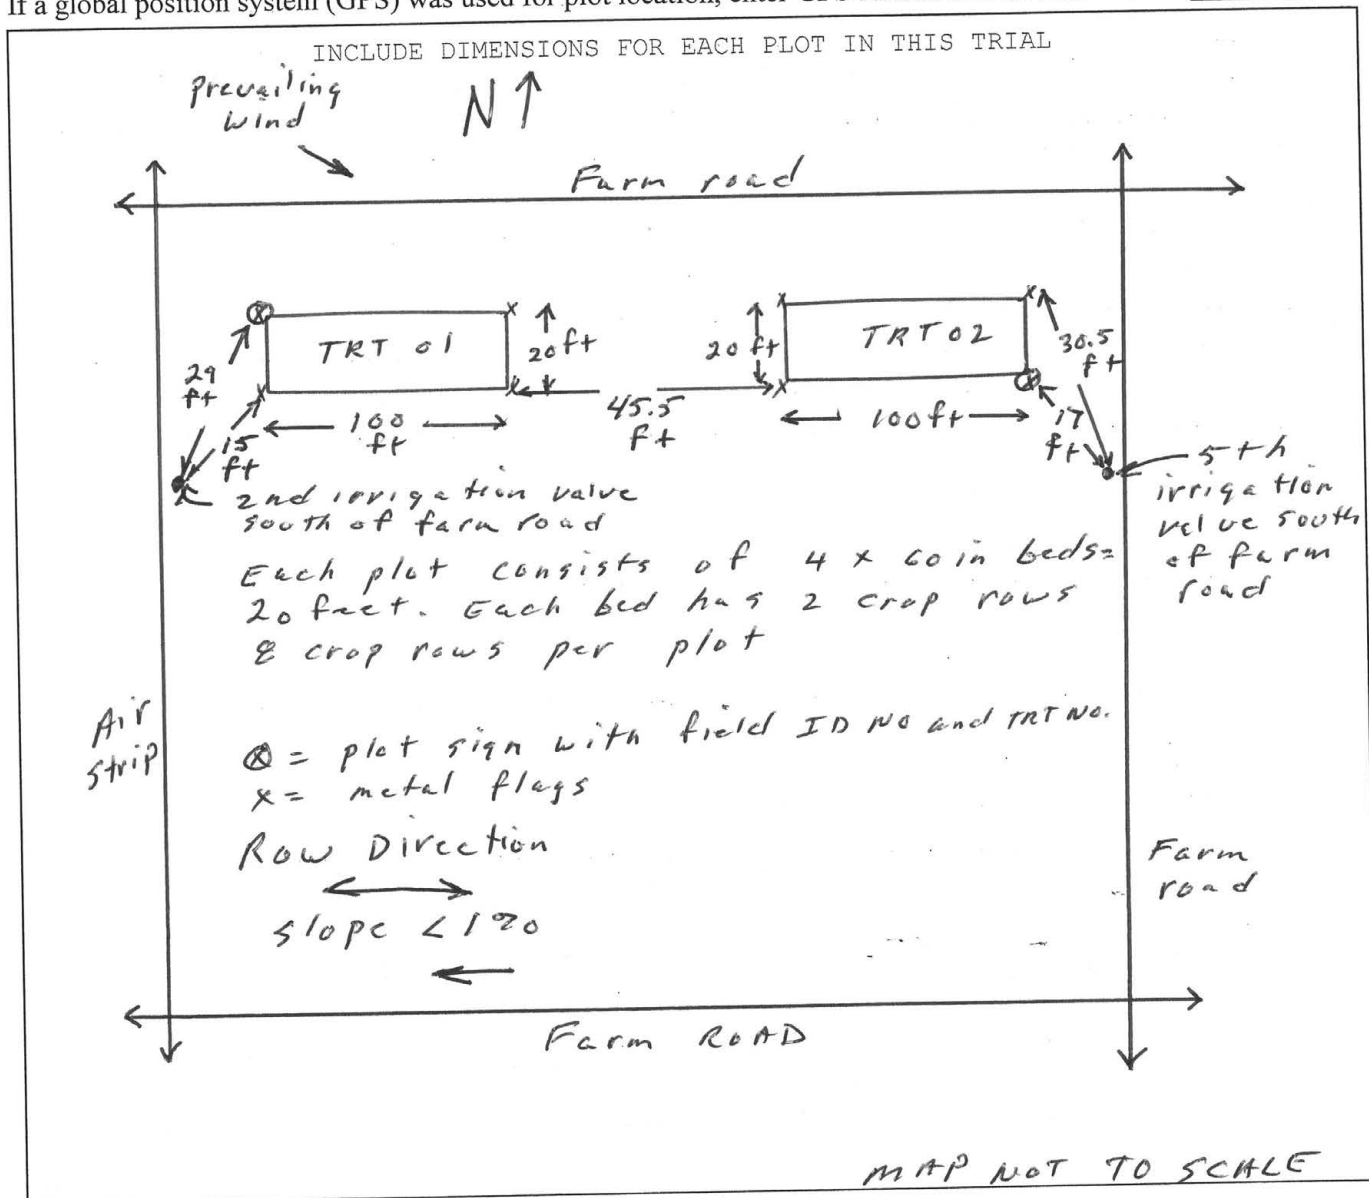 If a global position system (GPS) was used for plot location, enter
INCLUDE DIMENSIONS FOR EACH PLOT IN THIS TRIAL
Prevailing
Wind
N↑
Farm road
TRT 01
20 ft
20 ft
TRT 02
30.5
ft
29
ft
15
ft
100
ft
45.5
ft
100 ft
17
ft
2nd irrigation valve
south of farm road
5th
irrigation
valve south
of farm
road
Each plot consists of 4 x 60 in beds=
20 feet. Each bed has 2 crop rows
8 crop rows per plot
Air
strip
ⓧ = plot sign with field ID NO and TRT NO.
x = metal flags
Row Direction
slope <1%
Farm
road
Farm ROAD
MAP NOT TO SCALE